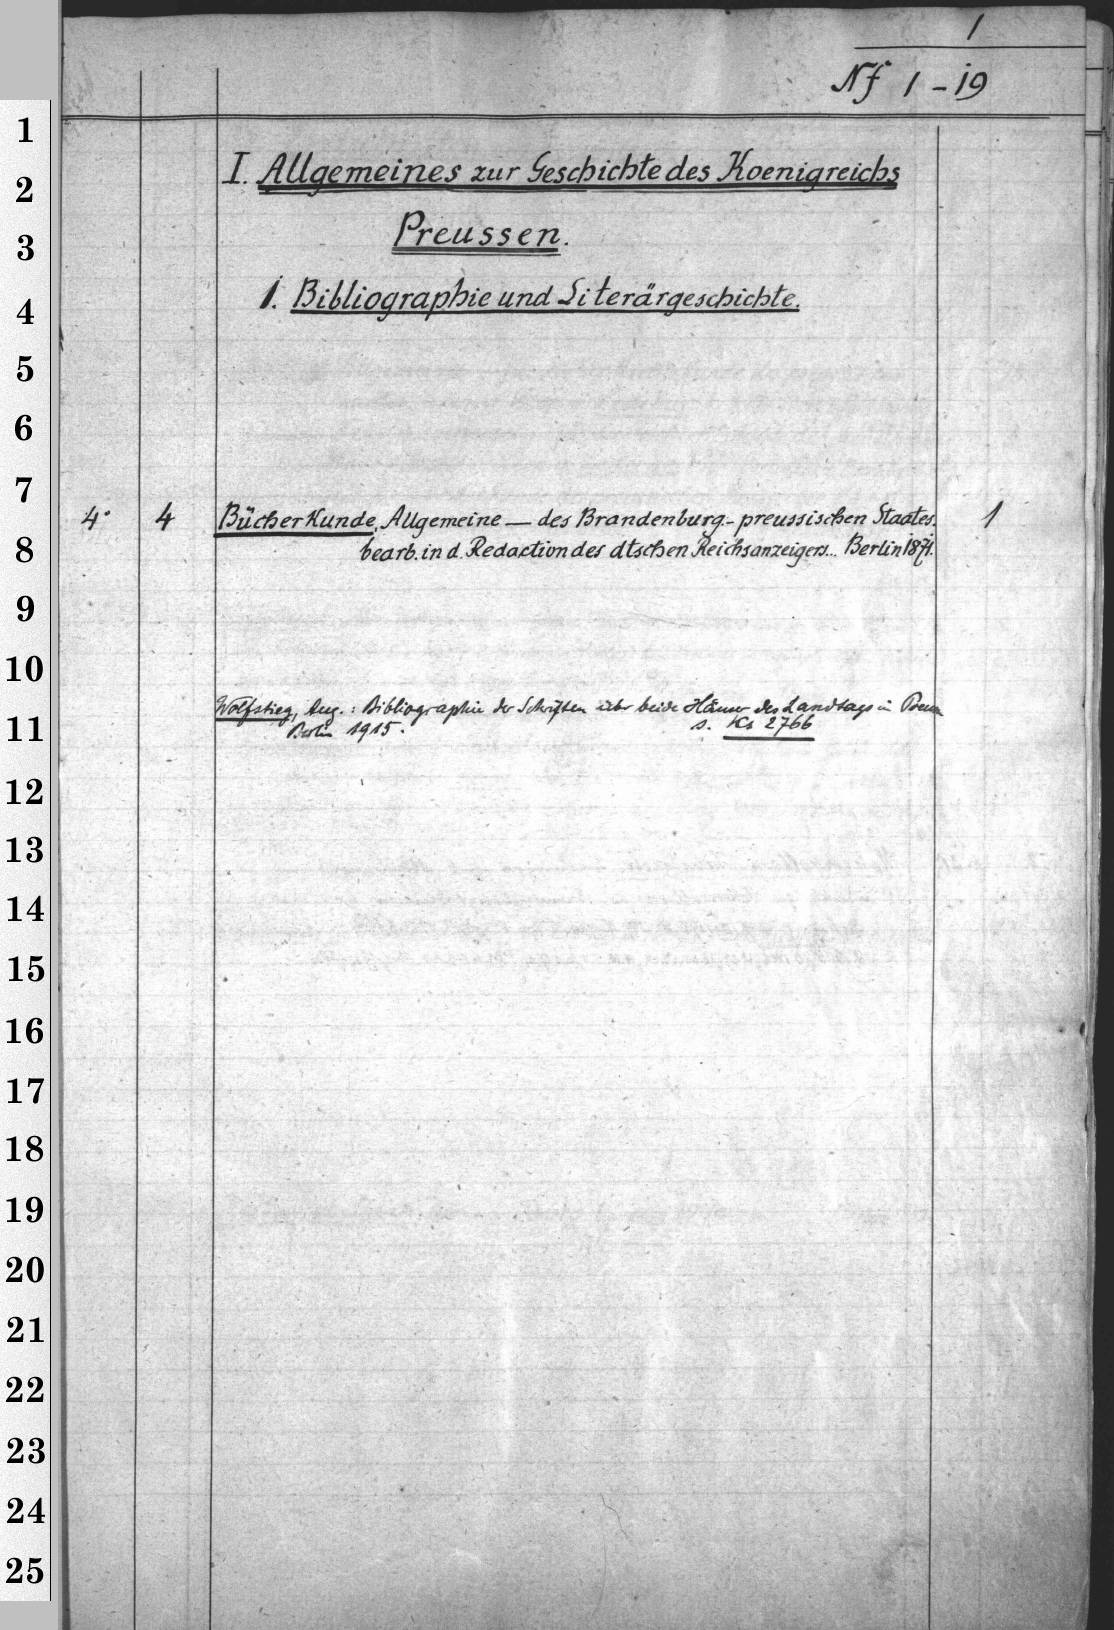 1
Nf 1-19
I. Allgemeines zur Geschichte des Koenigreichs
Preussen.
1. Bibliographie und Literärgeschichte.
4° 4 Bücherkunde, Allgemeine — des Brandenburg.-preussischen Staates. 1
bearb. in d. Redaction des dtschen Reichsanzeigers... Berlin 1871.
Wolfstieg, Aug.: Bibliographie der Schriften über beide Häuser des Landtags in Preussen
Berlin 1915. s. Ks 2766
1
2
3
4
5
6
7
8
9
10
11
12
13
14
15
16
17
18
19
20
21
22
23
24
25